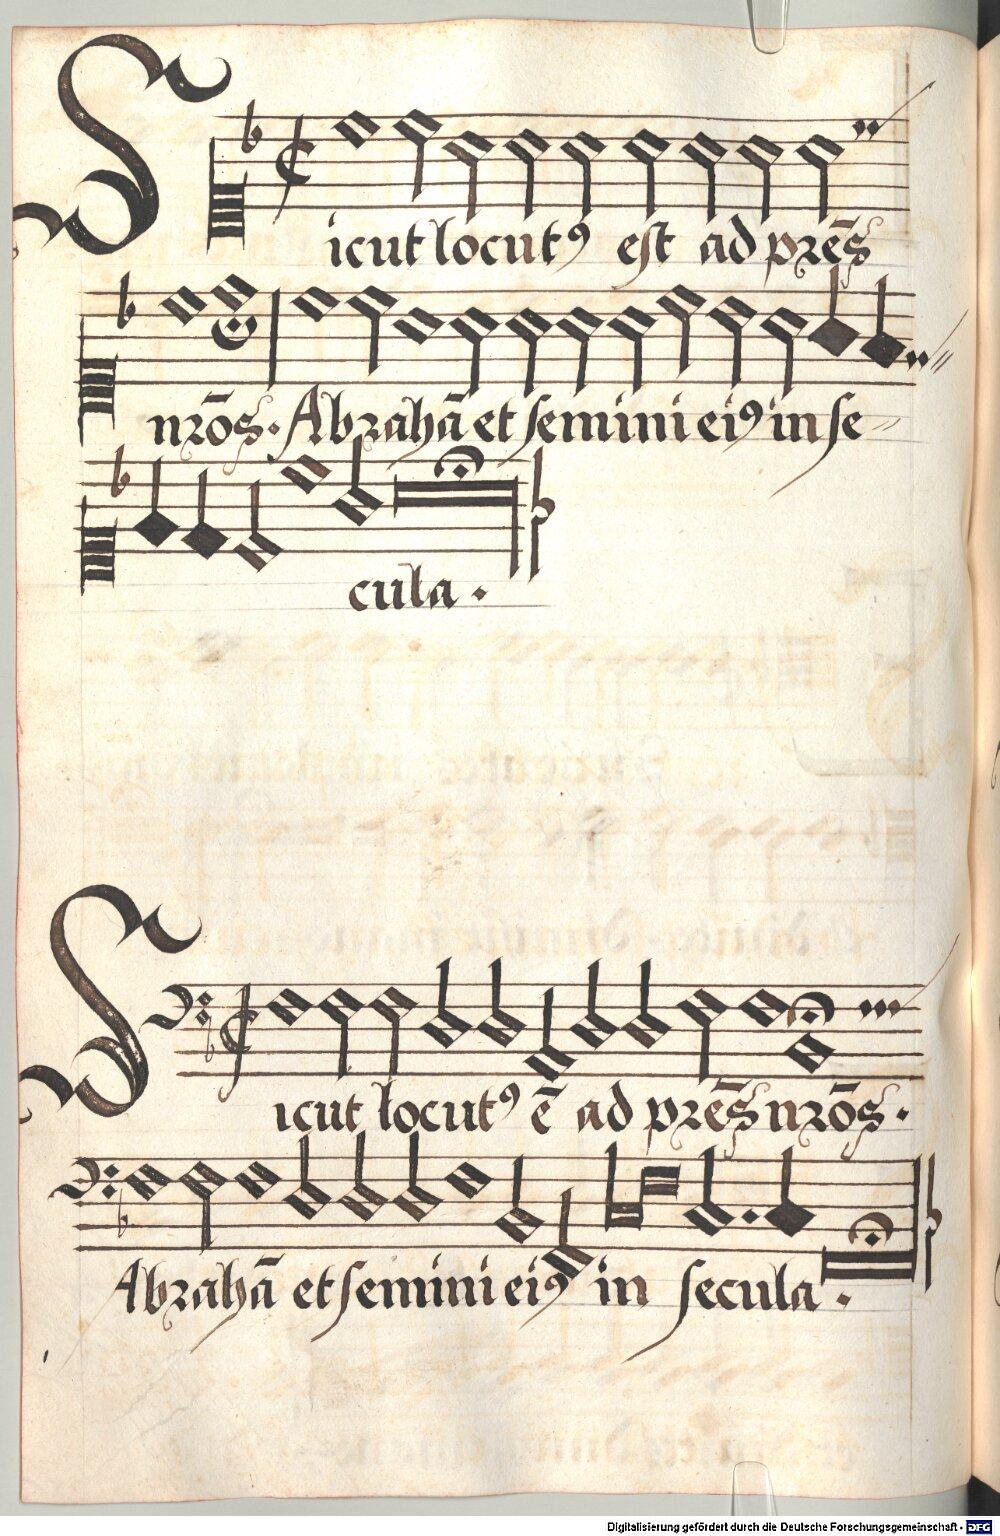 Sicut locutꝰ est ad pr̄es
nr̄os. Abrahā et semini eiꝰ in se
cula.
Sicut locutꝰ ē ad pr̄es nr̄os.
Abrahā et semini eiꝰ in secula.
Digitalisierung gefördert durch die Deutsche Forschungsgemeinschaft - DFG